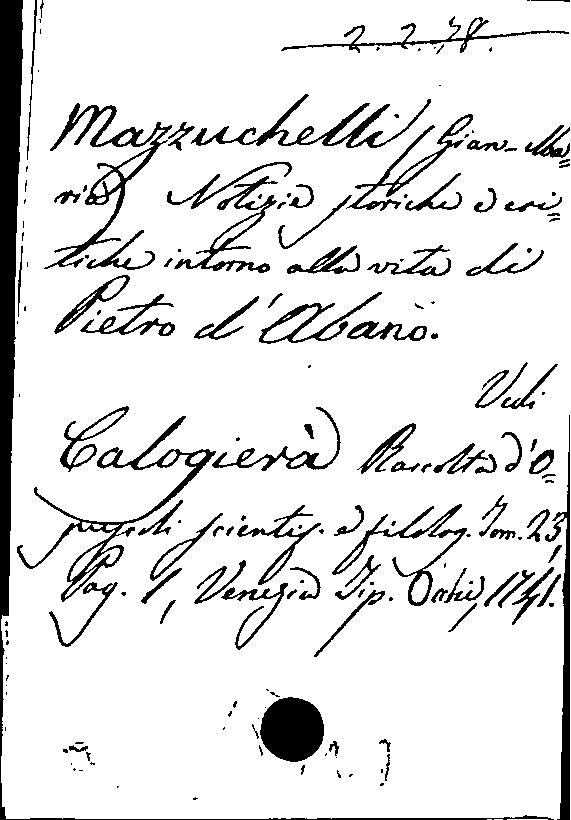 2.2.78.
Mazzuchelli (Gian-Ma=
ria) Notizie storiche e cri=
tiche intorno alla vita di
Pietro d'Abano.
Vedi
Calogierà Raccolta d'O=
puscoli scientif. e filolog. Tom. 23,
Pag. 1, Venezia Tip. 1741.